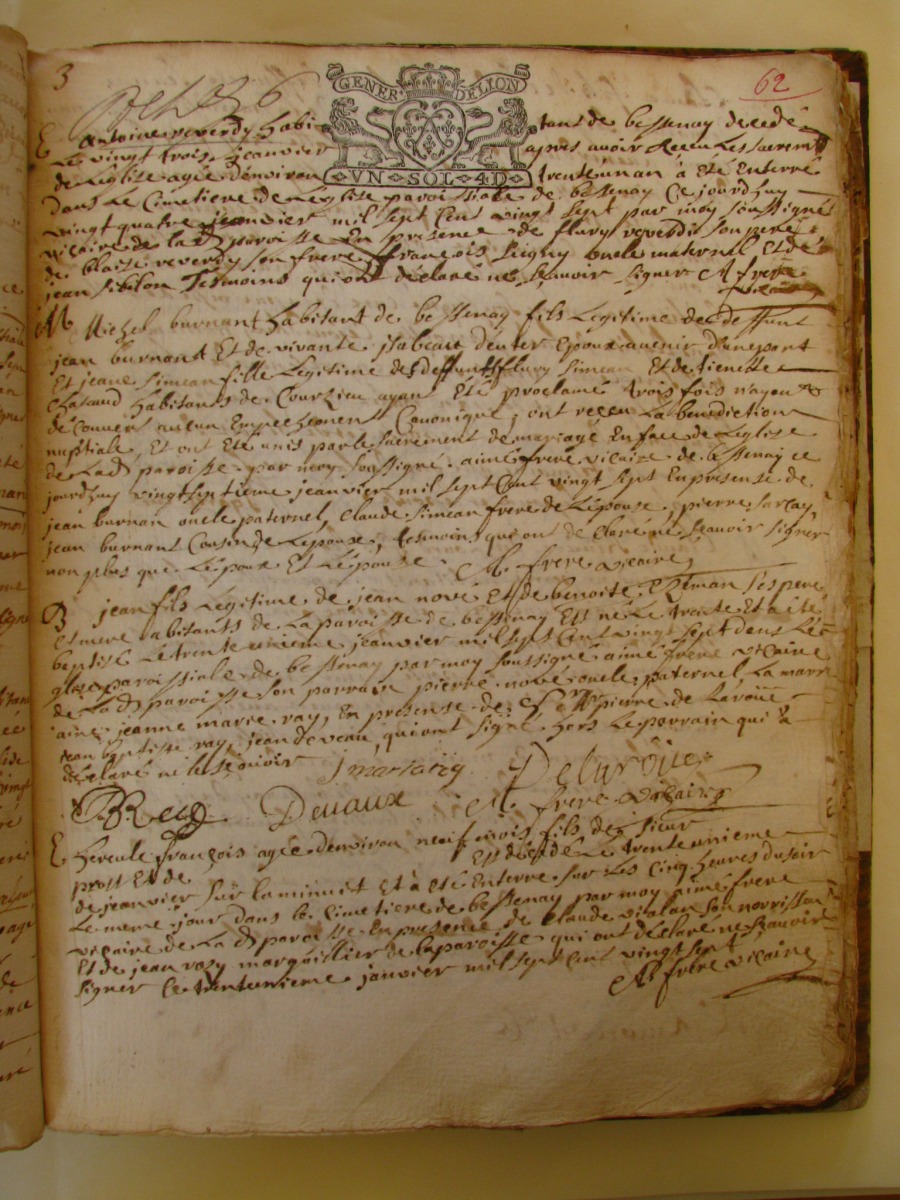 3
62
GENER DELION
VN SOL 4D
E Antoine reverdy habi tant de bessenay decedé
Le vingt trois jeanvier apres avoir Receu Les sacrem
de Leglise agee denviron trente un an à été Enterré
dans Le Cimetiere de Leglise paroissiale de bessenay Ce jourdhuy
vingt quatre jeanvier mil sept Cent vingt sept par moy soussigné
vicaire de lad paroisse En presence de flury reverdi son pere
de blaise reverdy son frere francois uncle maternel Et de
jean sibilon Tesmoins qui ont déclaré ne sçavoir signer A frere
vicaire
M Michel burnant habitant de bessenay fils Legitime de deffunt
jean burnant Et de vivante jsabeau Epoux avenir dunepart
Et jeane simean fille Legitime de deffunt flury simean Et de tienette
habitants de Courzieu ayant Eté proclamé trois fois nayant
de Conver aucun Empechement Canonique, ont receu La benediction
nuptiale, Et ont Eté unis par le sacrement de mariage En face de Leglise
de Lad paroisse par moy soussigné aimé frere vicaire de bessenay ce
jourdhuy vingt septieme jeanvier mil sept Cent vingt sept En presense de
jean burnan oncle paternel, Claude simean frere de Lépouse, pierre
jean burnant Cousin de Lepoux, tesmoins qui ont declaré ne sçavoir signer
non plus que Lépoux Et Lépouse. A. frere vicaire
B jean fils Légitime de jean nové Et de benoite ses pere
Et mere abitants de La paroisse de bessenay Est né Le trente Et a été
baptisé Le trente unieme jeanvier mil sept Cent vingt sept dens Lé
glise paroissiale de bessenay par moy soussigné aimé frere vicaire
de Lad paroisse son parrain pierre nove oncle paternel, La marre
aine jeanne marie ray, En presense de pierre de Laroüe
jean baptiste ray, jean deveau, qui ont signé hors Le parrain qui à
déclaré ne le sçavoir Delaroüe
Devaux A. frere vicaire
E hercule françois agée denviron neuf mois fils de sieur
prost Et de Est décédé Le trente unieme
de jeanvier sur la minuit Et à Eté Enterre sur Les Cinq heures du soir
Le meme jour dans le Cimetiere de bessenay par moy aimé frere
vicaire de La d paroisse En presence de Claude vialan son norrissan
Et de jean rozy marguillier de la paroisse qui ont déclaré ne sçavoir
signer Ce trente unieme janvier mil sept Cent vingt sept
A frere vicaire